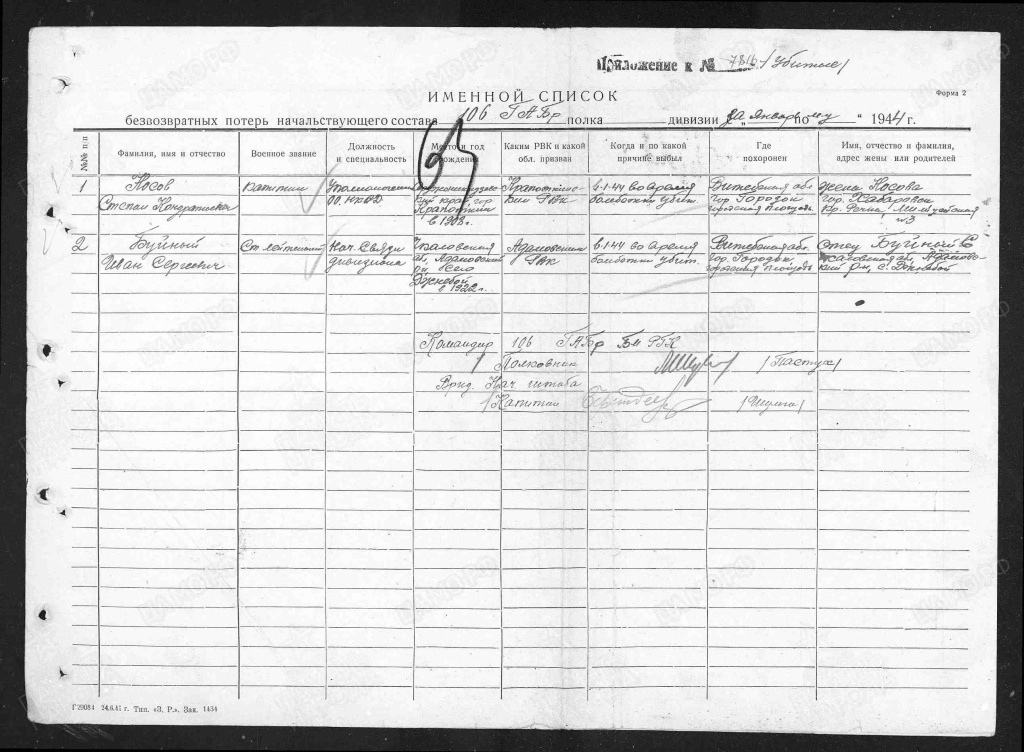 Приложение к № 7816 /Убитые/
Форма 2
ИМЕННОЙ СПИСОК
безвозвратных потерь начальствующего состава 106 ГАБр полка дивизии за январь по м-ц 1944 г.
№№ п/п
Фамилия, имя и отчество
Военное звание
Должность и специальность
Место и год рождения
Каким РВК и какой обл. призван
Когда и по какой причине выбыл
Где похоронен
Имя, отчество и фамилия, адрес жены или родителей
1
Носов
Степан Кондратьевич
Капитан
Уполномоченный
ОО НКВД
Орджоникидзевский край гор.
Кропоткин
в 1908 г.
Кропоткинский РВК
6-1-44 во время
бомбежки убит
Витебская обл.
гор. Городок
городская площадь
жена Носова
гор. Хабаровск
№3
2
Буйный
Иван Сергеевич
Ст. лейтенант
Нач. Связи
дивизиона
Чкаловская
об. Адамовский
р-н, село
в 1922 г.
Адамовский
РВК
6-1-44 во время
бомбежки убит.
Витебская обл.
гор. Городок,
городская площадь
отец Буйный С
Чкаловская обл. Адамовский р-н, с.
Командир 106 ГАБр БМ РГК
Полковник /Пастух/
Врид. Нач штаба
/Капитан /Шульга/
Г29084 24.6.41 г. Тип. «З. Р.». Зак. 1434
ЦАМО РФ